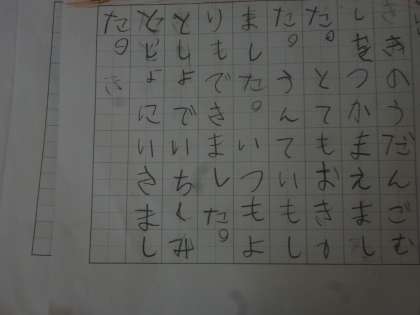 きのうだんごむ
しをつかまえまし
た。とてもおきか
た。うんていもし
ました。いつもよ
りもできました。
としよでいちくみ
よにいきまし
た。